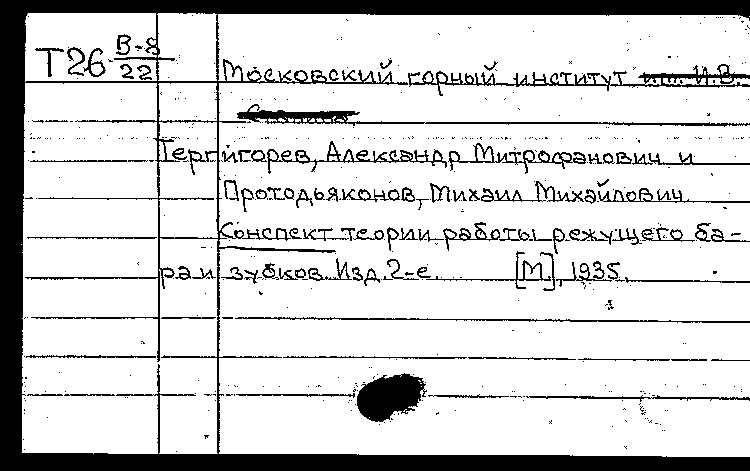 Т26 В-8/22
Московский горный институт им. И.В.
Сталина
Терпигорев, Александр Митрофанович и
Протодьяконов, Михаил Михайлович
Конспект теории работы режущего ба-
ра и зубков. Изд. 2-е. [М.], 1935.